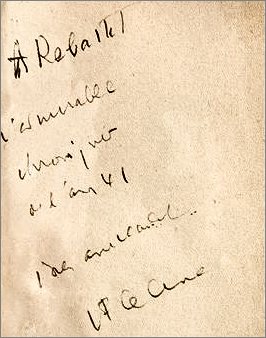 A Rebatet
l'admirable
chroniqueur
de l'an 41
bien amicalement
LF Celine